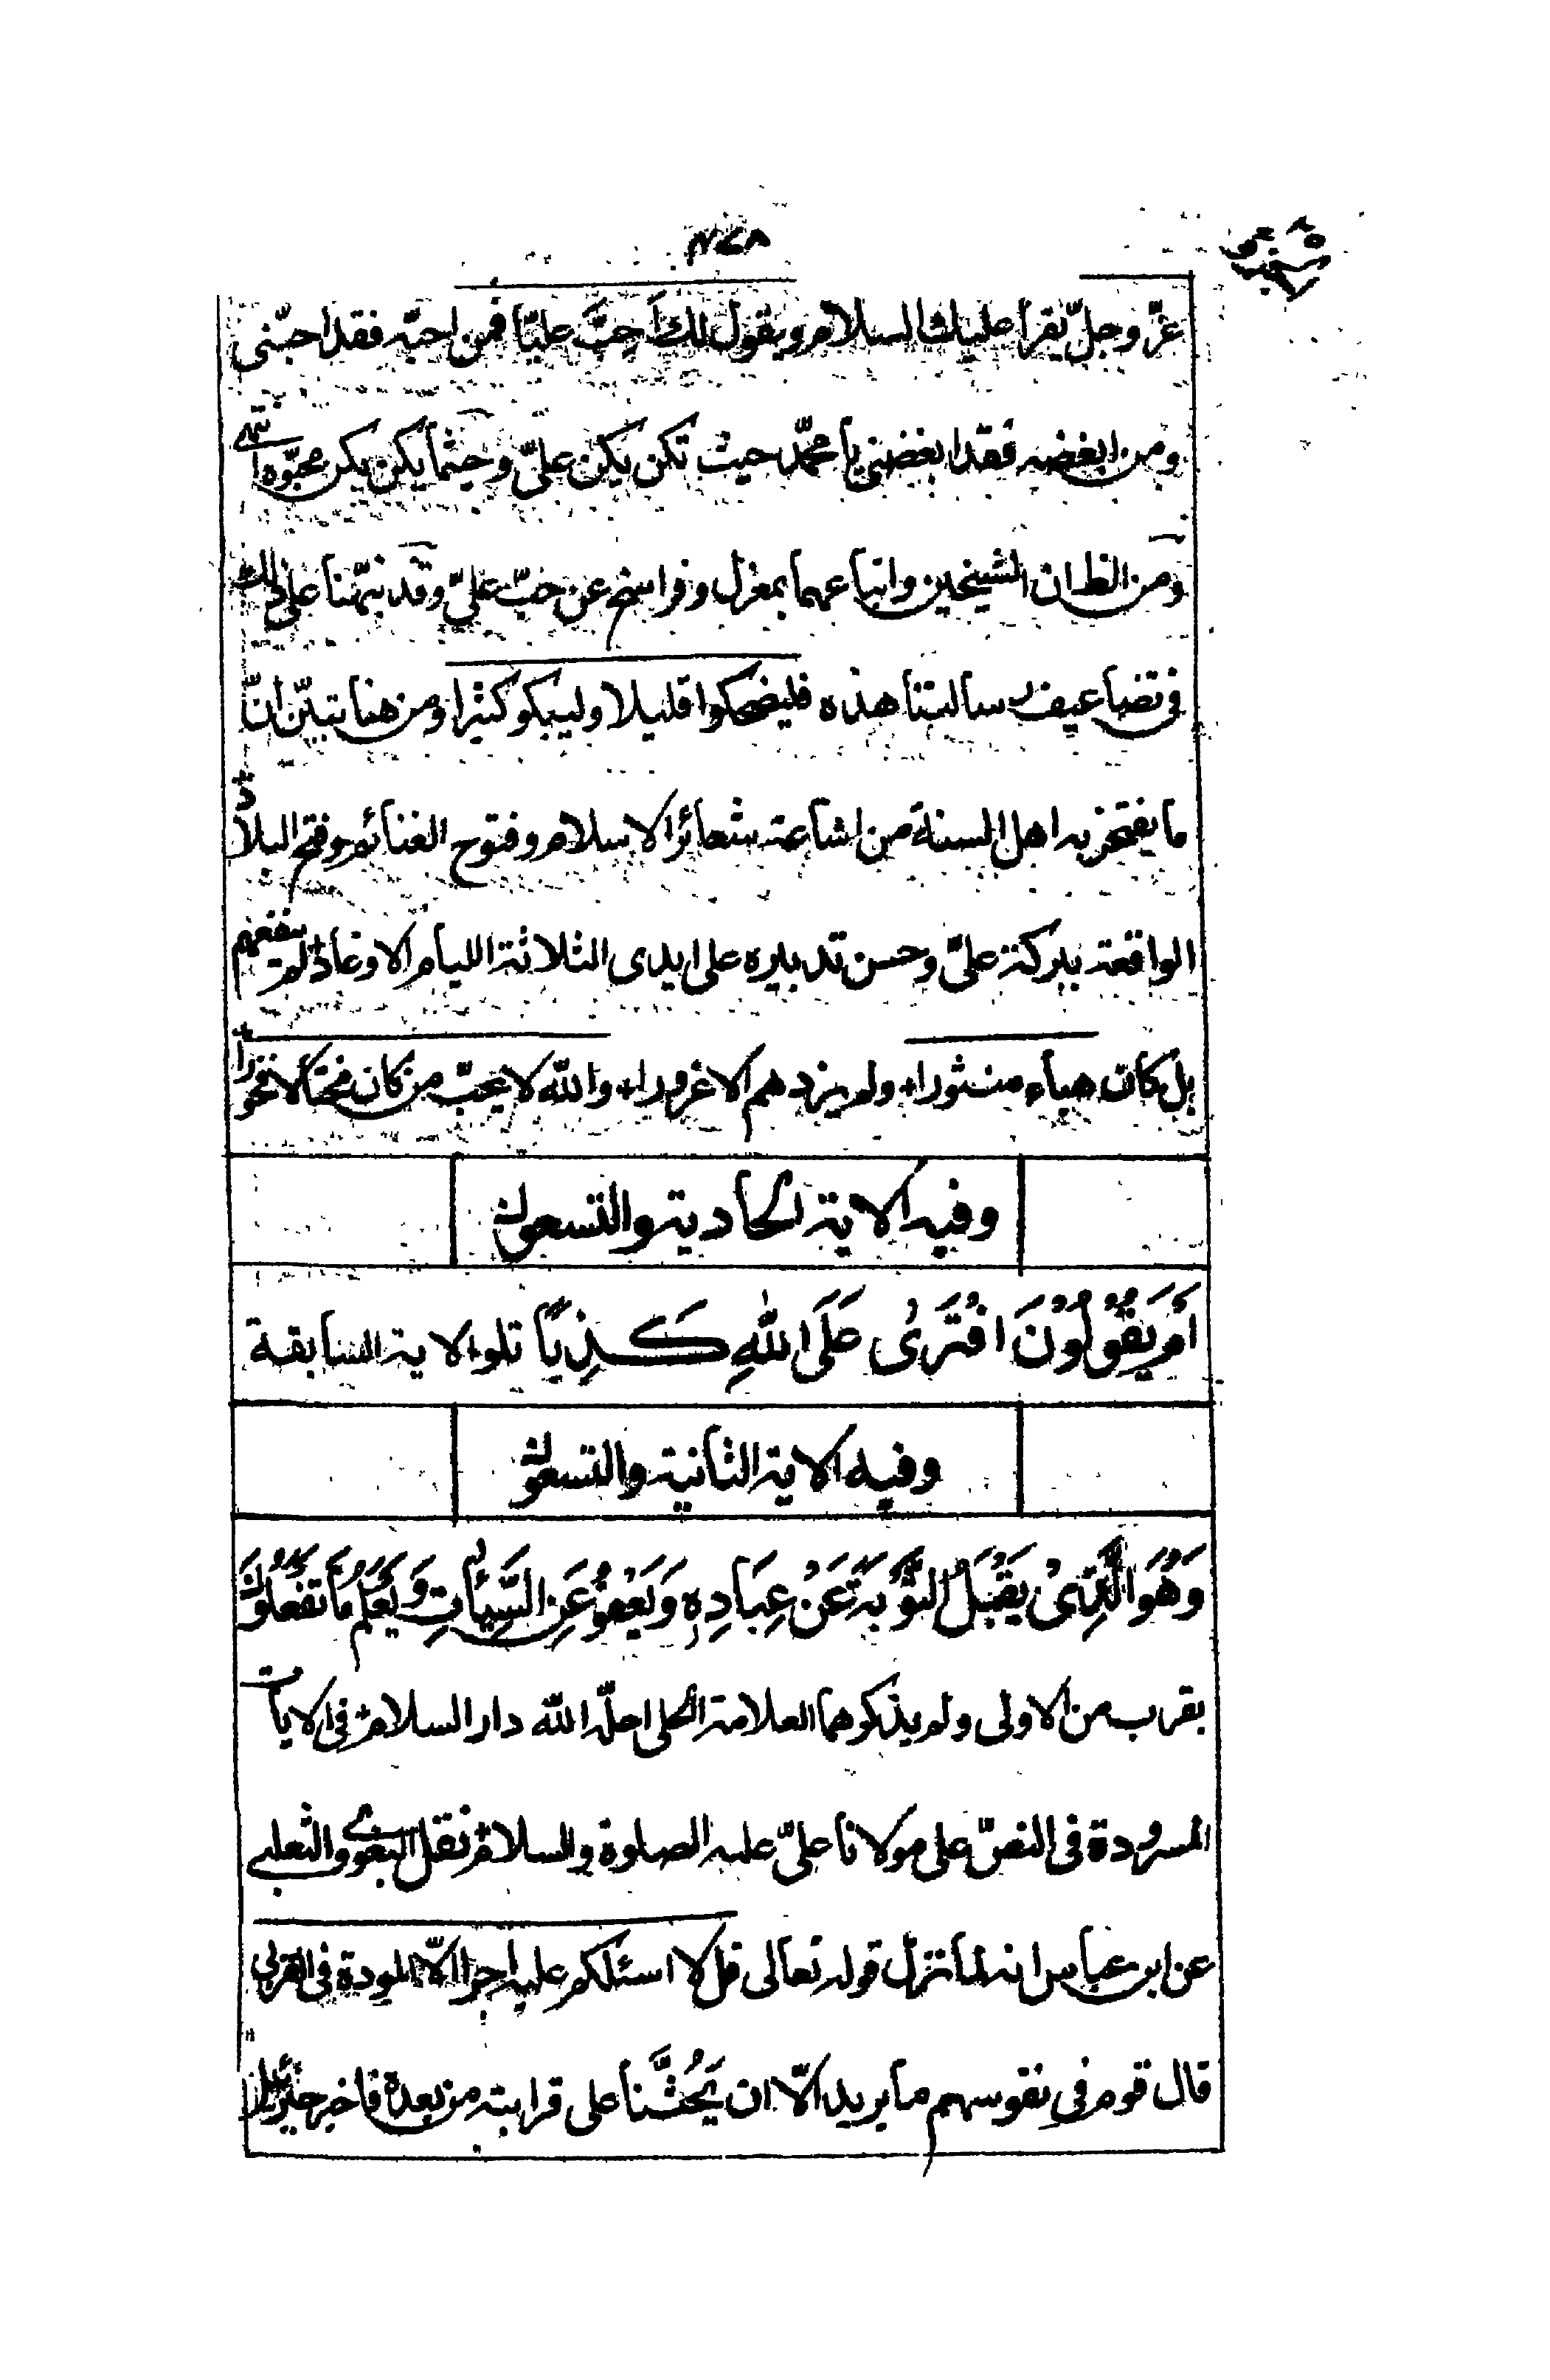 ٣٧٨
عزّ وجلّ يقرأ عليك السلام ويقول لك اَحِبَّ عليّا فمن احبّه فقد احبّنى
ومن ابغضه فقد ابغضنى يا محمّد حيث تكن يكن علىّ وحيثما يكن يكن محبّوه
ومن الظ ان الشيخين واتباعهما بمعزل وفراسخ عن حبّ علىّ وقد نبّهنا على ذلك
فى تضاعيف رسالتنا هذه فليضحكوا قليلا وليبكو كثيرا ومن هنا يتبيّن انّ
ما يفتخر به اهل السنة من اشاعة شعائر الاسلام وفتوح الغنائم وفتح البلاد
الواقعة ببركة علىّ وحسن تدبيره على ايدى الثلاثة الليام الاوغاد لم ينفعهم
بل كان هباء منثورا ولم يزدهم الا غرورا والله لا يحبّ من كان مختالا فخورا
وفيه الاية الحادية والتسعون
اَمْ يَقُوْلُوْنَ افْتَرٰى عَلَى اللهِ كَذِبًا تلو الاية السابقة
وفيه الاية الثانية والتسعون
وَهُوَ الَّذِىْ يَقْبَلُ التَّوْبَةَ عَنْ عِبَادِهٖ وَيَعْفُوْ عَنِ السَّيِّاٰتِ وَيَعْلَمُ مَا تَفْعَلُوْنَ
بقرب من الاولى ولم يذكرهما العلامة الحلى احلّه الله دار السلام فى الايات
المسرودة فى النصّ على مولانا علىّ عليه الصلوة والسلام نقل البغوى والثعلبى
عن ابن عباس انه لما نزل قوله تعالى قل لا اسئلكم عليه اجرا الّا المودة فى القربى
قال قوم فى نفوسهم ما يريد الّا ان يَحُثَّنا على قرابته من بعده فاخبر جبرئيل